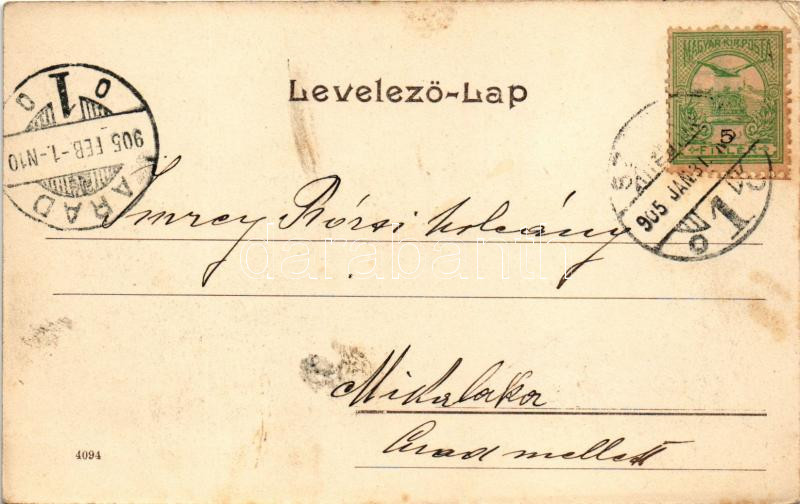 Levelező-Lap
MAGYAR KIR. POSTA
5
FILLÉR
905 JAN 31
1
1
905 FEB.-1.-N10
ARAD
Imrey Rózsi
Mikalaka
Arad mellett
4094
darabanth